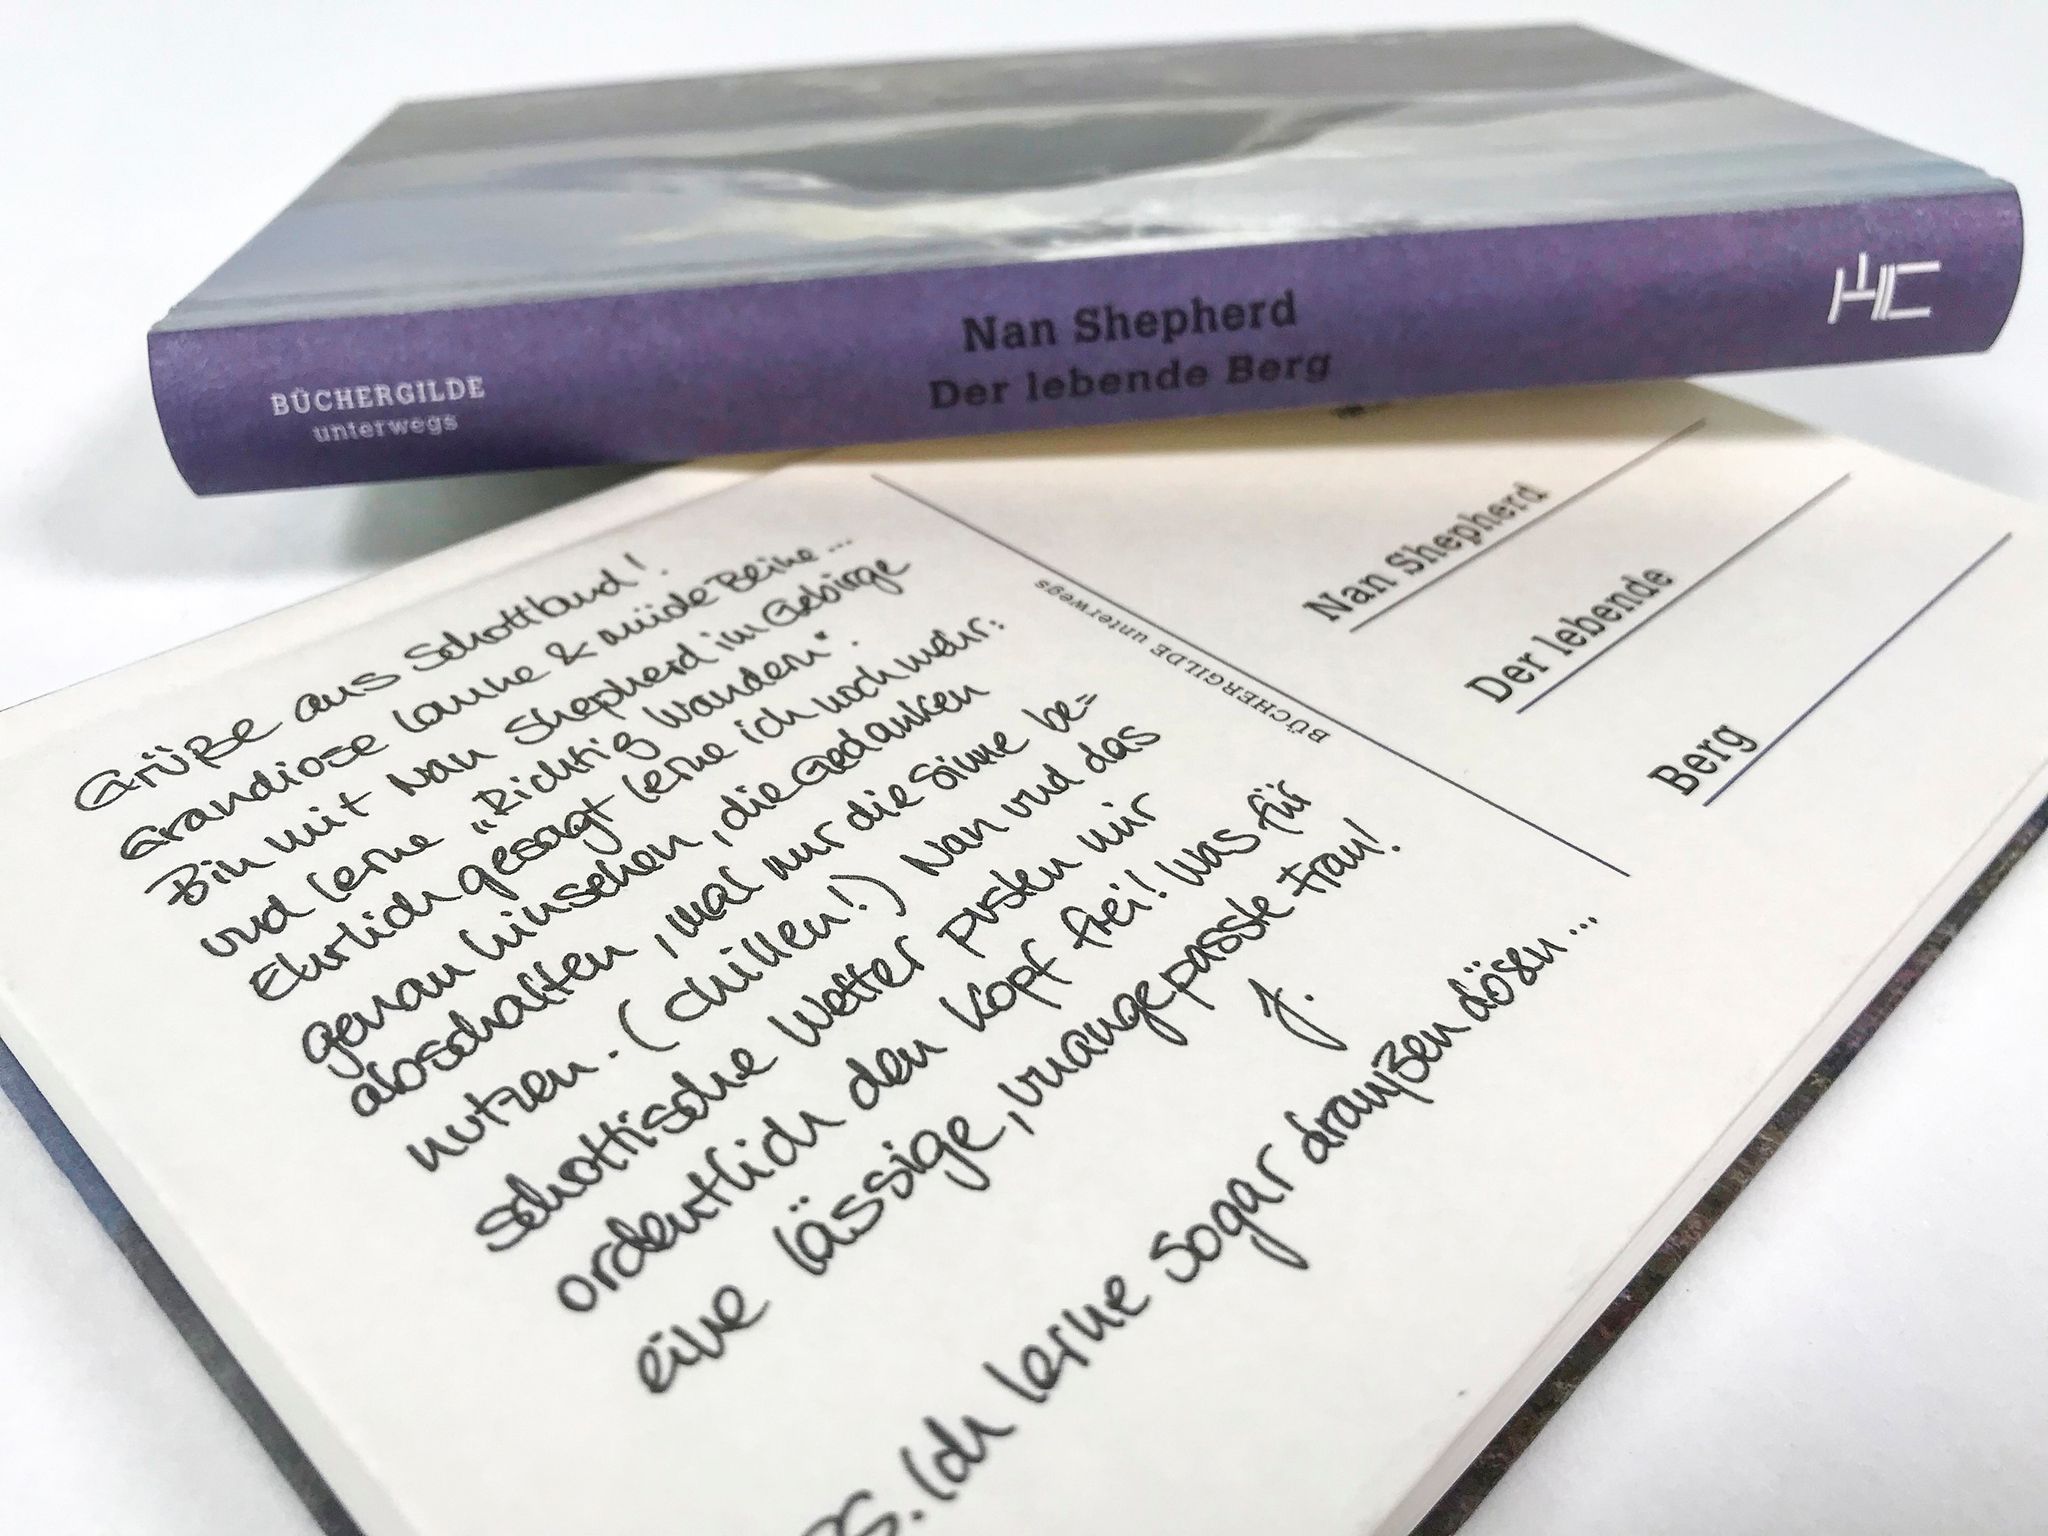 BÜCHERGILDE
unterwegs
Nan Shepherd
Der lebende Berg
Grüße aus Schottland!
Grandiose Laune & müde Beine...
Bin mit Nan Shepherd im Gebirge
und lerne „Richtig Wandern“.
Ehrlich gesagt lerne ich noch mehr:
genau hinsehen, die Gedanken
abschalten, mal nur die Sinne be=
nutzen. (chillen!) Nan und das
schottische Wetter pusten mir
ordentlich den Kopf frei! Was für
eine lässige, unangepasste Frau!
J.
PS. Ich lerne sogar draußen dösen...
BÜCHERGILDE unterwegs
Nan Shepherd
Der lebende
Berg